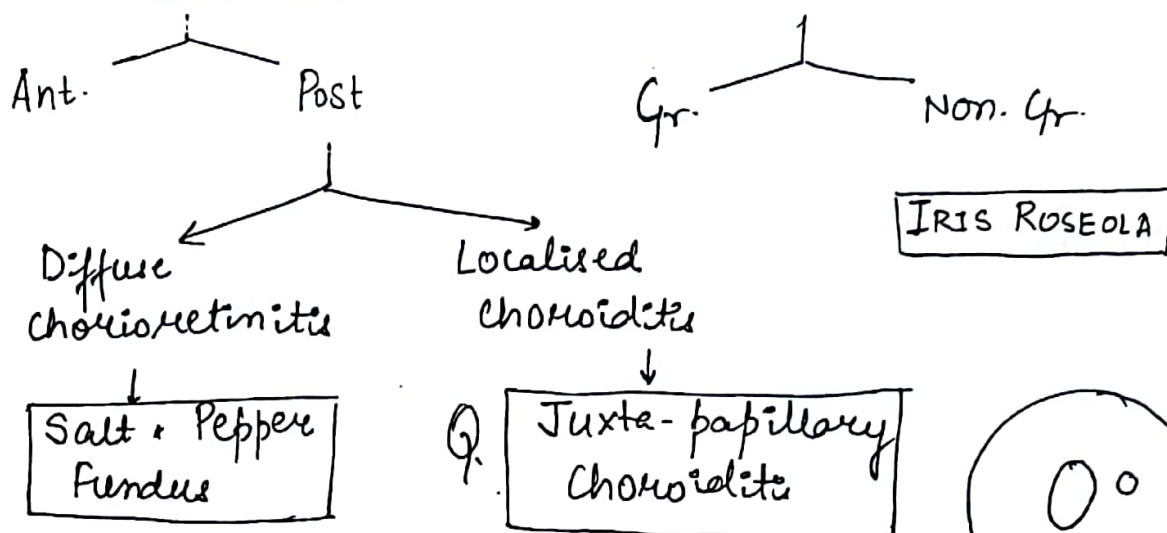 Ant.
Post
Gr.
Non. Gr.
IRIS ROSEOLA
Diffuse
chorioretinitis
Localised
choroiditis
Salt & Pepper
Fundus
Q.
Juxta-papillary
Choroiditis